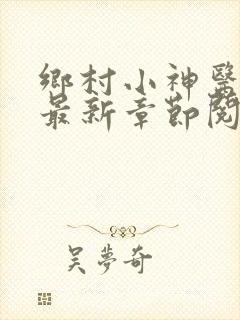 鄉村小神醫
最新章節閱
吳夢奇